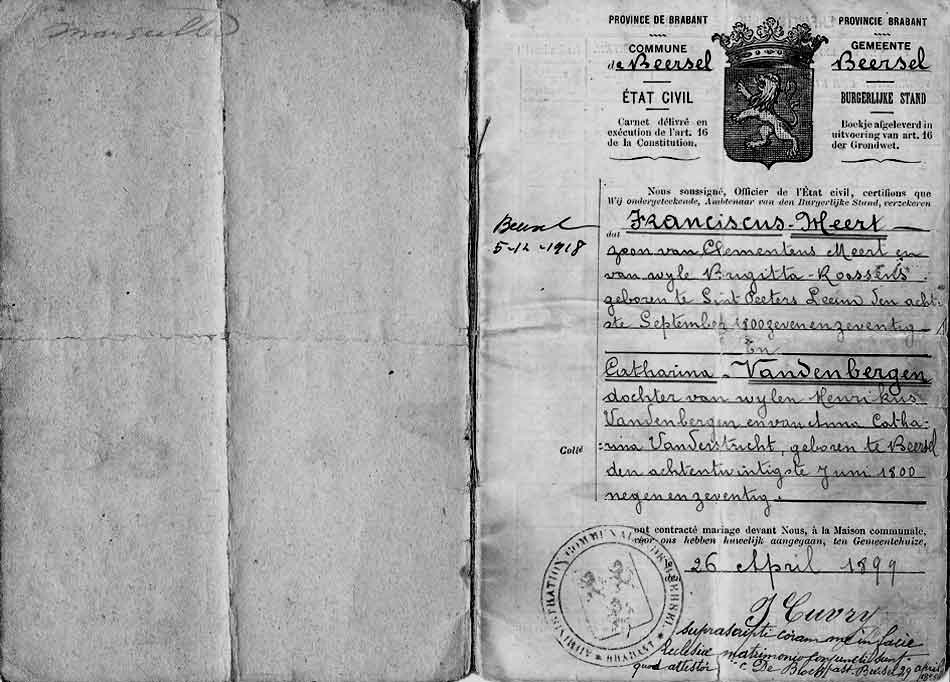 PROVINCE DE BRABANT
COMMUNE
de Beersel
ÉTAT CIVIL
Carnet délivré en
exécution de l'art. 16
de la Constitution.
PROVINCIE BRABANT
GEMEENTE
Beersel
BURGERLIJKE STAND
Boekje afgeleverd in
uitvoering van art. 16
der Grondwet.
Nous soussigné, Officier de l'État civil, certifions que
Wij ondergeteekende, Ambtenaar van den Burgerlijke Stand, verzekeren
dat Franciscus Meert
zoon van Clementens Meert en
van wyle Brigitta Roossens
geboren te Sint Peeters Leeuw den acht-
ste September 1800 zevenenzeventig,
En
Catharina Vandenbergen
dochter van wylen Henrikus
Vandenbergen en van Anna Catha-
rina Vanderstricht, geboren te Beersel
den achtentwintigste Juni 1800
negenenzeventig.
Beersel
5-12-1918
Collé
ont contracté mariage devant Nous, à la Maison communale,
voor ons hebben huwelijk aangegaan, ten Gemeentehuize,
le
den 26 April 1899
ADMINISTRATION COMMUNALE DE BEERSEL
BRABANT
J Cuvry
suprascripti coram me in facie
Ecclesiae matrimonio conjuncti sunt
quod attestor De Block past. Beersel 29 april